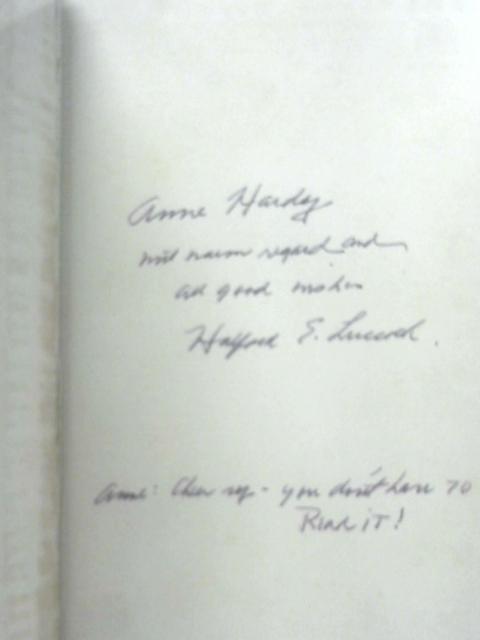 Anne Hardy
with warm regard and
all good wishes
Halford E. Luccock.
Anne: Cheer up - you don't have TO
Read iT!